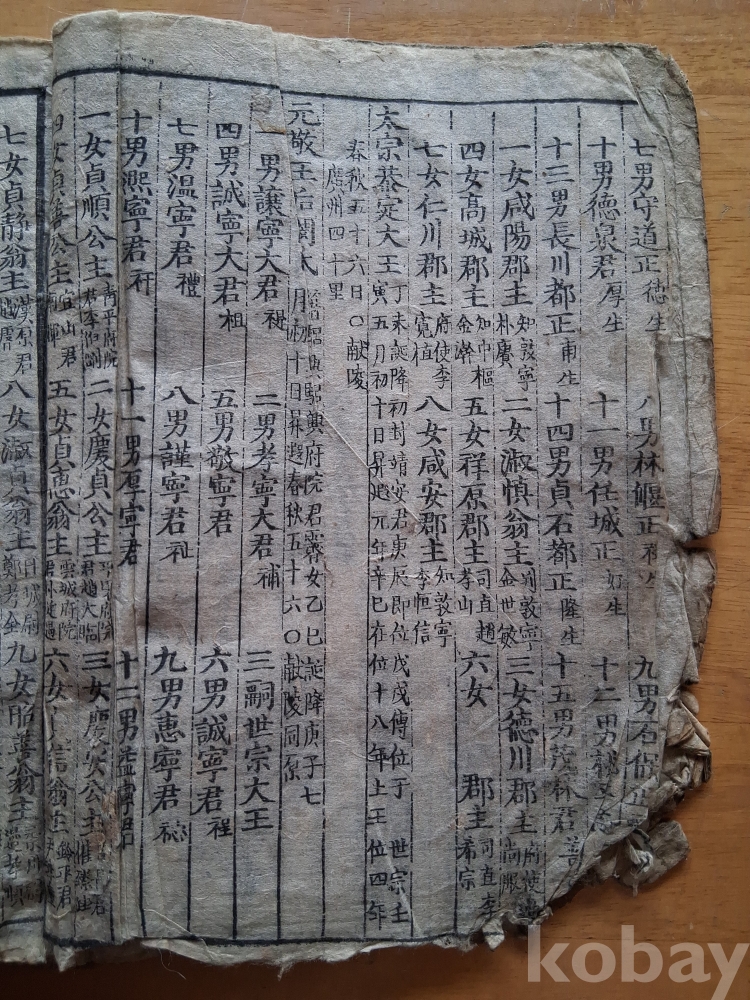 七男守道正 德生 八男林堰正 九男石保正
十男德泉君 厚生 十一男任城正 好生 十二男
十三男長川都正 甫生 十四男貞石都正 隆生 十五男茂林君 善
一女咸陽郡主 知敦寧朴賡 二女淑愼翁主 判敦寧金世敏 三女德川郡主 府使邊尙服
四女高城郡主 知中樞金澣 五女祥原郡主 司直趙孝山 六女 郡主 司直李希宗
七女仁川郡主 府使李寬植 八女咸安郡主 知敦寧李恒信
太宗恭定大王 丁未誕降初封靖安君庚辰卽位戊戌傳位于 世宗 上王位四年
寅五月初十日昇遐元年辛巳在位十八年
春秋五十六 日○獻陵
廣州四十里
元敬王后閔 驪興府院君霽女乙巳誕降庚子七
月初十日昇遐春秋五十六○獻陵同原
一男讓寧大君 禔 二男孝寧大君 補 三嗣世宗大王
四男誠寧大君 五男敬寧君 六男諴寧君
七男溫寧君 八男謹寧君 九男惠寧君
十男熙寧君 十一男厚寧君 十二男益寧君
一女貞順公主 靑平府院君李伯剛 二女慶貞公主 平壤府院君趙大臨 三女慶安公主
四女貞善公主 宜山君南暉 五女貞惠翁主 雲城府院君朴從愚 六女 信翁主 鈴平君
七女貞靜翁主 漢原君趙璿 八女淑貞翁主 日城尉鄭孝全 九女昭善翁主
kobay